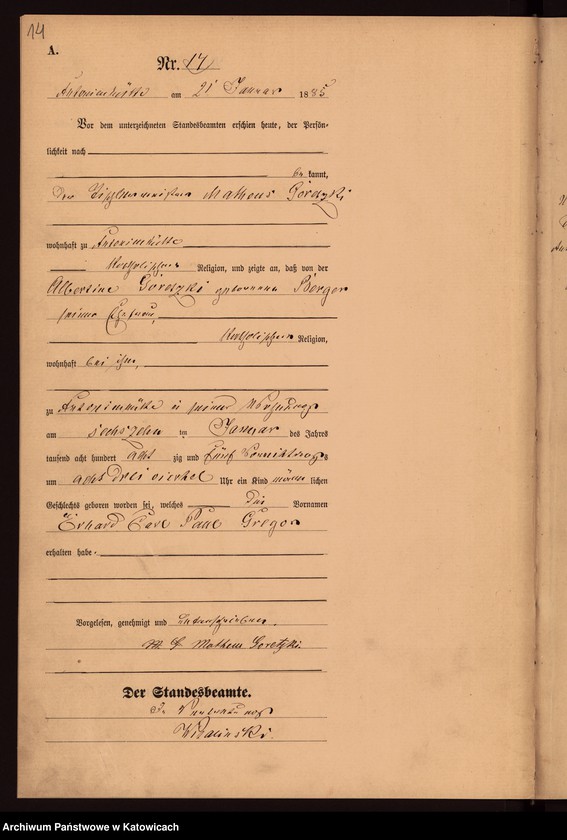 14
A.
Nr. 17
Antonienhütte am 21 Januar 1885
Vor dem unterzeichneten Standesbeamten erschien heute, der Persön-
lichkeit nach
be kannt,
der Tischlermeister Matheus Goretzki
wohnhaft zu Antonienhütte
katholischer Religion, und zeigte an, daß von der
Albertine Goretzki geborenen Berger
seiner Ehefrau,
katholischer Religion,
wohnhaft bei ihm,
zu Antonienhütte in seiner Wohnung
am sechszehn ten Januar des Jahres
tausend acht hundert acht zig und fünf Vormittags
um acht drei viertel Uhr ein Kind männ lichen
Geschlechts geboren worden sei, welches die Vornamen
Erhard Carl Paul Gregor
erhalten habe.
Vorgelesen, genehmigt und unterschrieben.
Matheus Goretzki.
Der Standesbeamte.
In Vertretung
Archiwum Państwowe w Katowicach